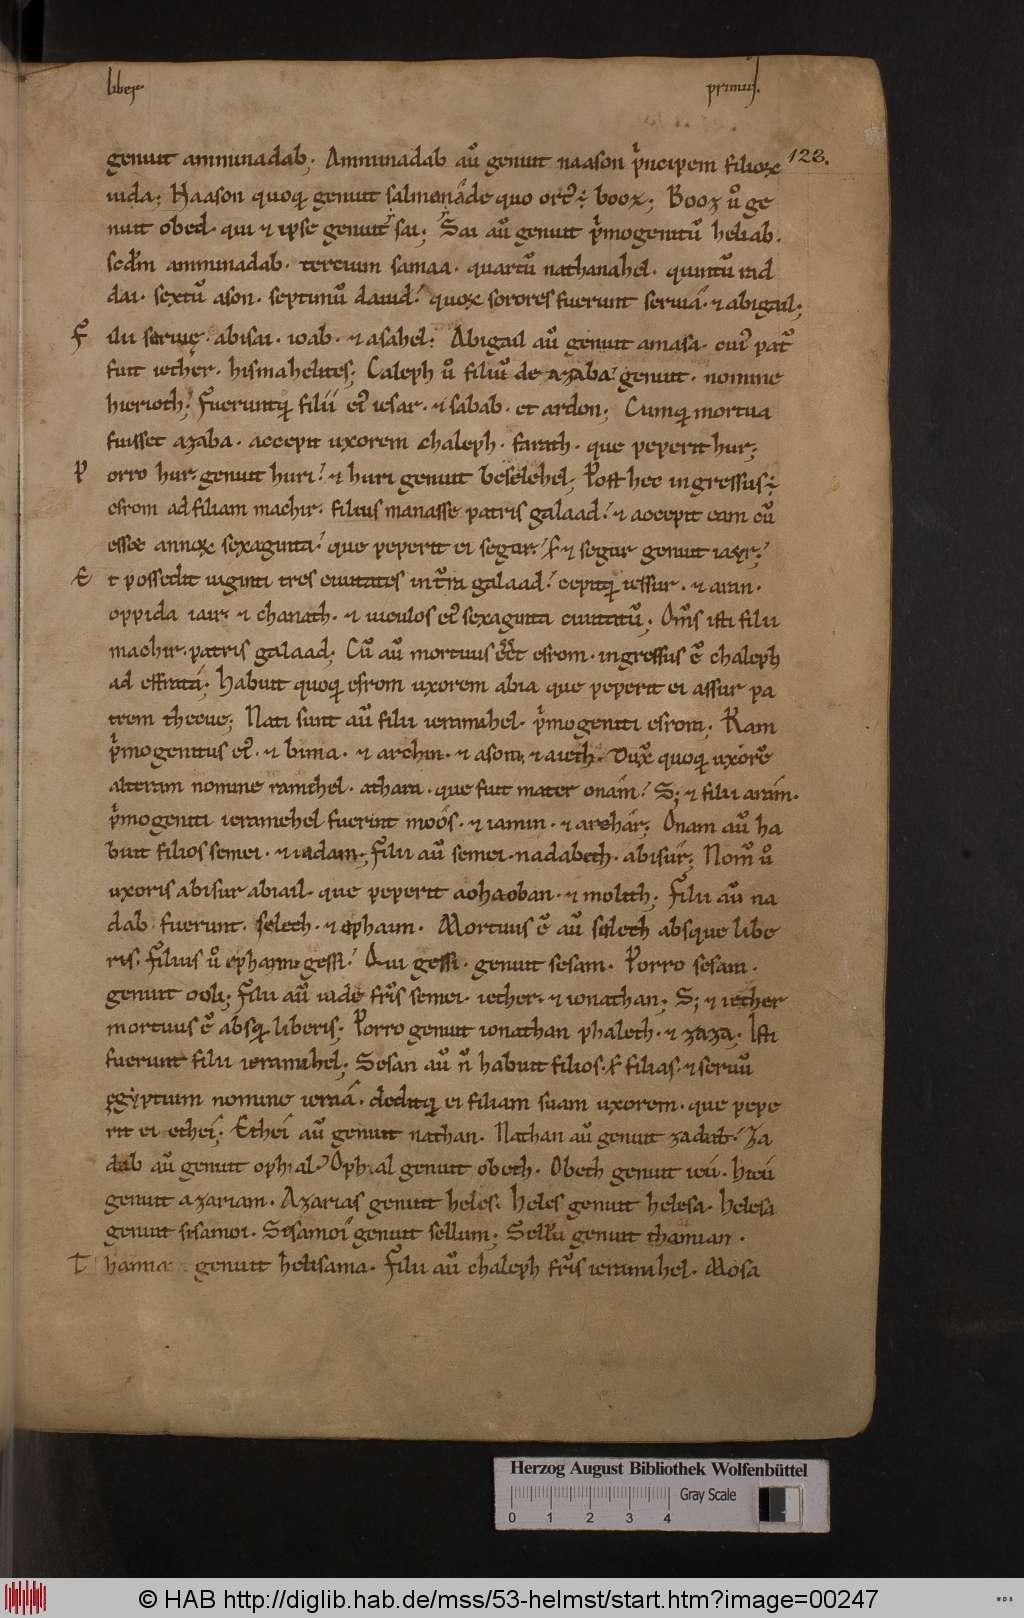 liber primus.
123.
genuit aminadab. Aminadab aū genuit naason p'ncipem filioꝝ
iuda; Naason quoq; genuit salmonā de quo ort' ÷ booz; Booz u° ge
nuit obed. qui & ipse genuit ysai; Ysai aū genuit p'mogenitū heliab.
sed'm aminadab. tertium samaa. quartū nathanahel. quintū rad
dai. sextū asom. septimū dauid. quoꝝ sorores fuerunt seruiá. & abigail;
Filii seruię. abisai. ioab. & asahel; Abigail aū genuit amasa. cui' pat'
fuit iether. hismahelites; Caleph u° filiū de azaba genuit. nomine
hierioth; Fueruntq; filii ei' iesar. & sabab. et ardon; Cumq; mortua
fuisset azaba. accepit uxorem chaleph. farath. que peperit hur;
Porro hur. genuit huri. & huri genuit beselehel; Post hec ingressus ÷
esrom ad filiam machir. filius manasse patris galaad. & accepit eam cū
esset annoꝝ sexaginta. que peperit ei segur. & segur genuit iayr;
Et possedit uiginti tres ciuitates in t'ra galaad. cepitq; iessur. & aran.
oppida iair. & chanath. & uiculos ei' sexaginta ciuitatū. Om̄s isti filii
machir. patris galaad; Cū aū mortuus eēt esrom. ingressus ē chaleph
ad effratá; Habuit quoq; esrom uxorem abia que peperit ei assur pa
trem thecue; Nati sunt aū filii ieramihel. p'mogeniti esrom; Ram
p'mogenitus ei'. & bima. & archin. & asom. & aieth. Dux' quoq; uxorē
alteram nomine ramihel. athara. que fuit mater onám. S; & filii arám.
p'mogeniti ieramehel fuerint moós. & iamin. & archár; Onam aū ha
buit filios semei. & iadam. Filii aū semei. nadabeth. abisúr; Nom̄ u°
uxoris abisur abiail. que peperit aohaoban. & molith; Filii aū na
dab fuerunt. selech. & ephaim. Mortuus ē aū selech absque libe
ris. Filius u° ephaim gessi. Qui gessi. genuit sesam. Porro sesam.
genuit ooli; Filii aū iude fr̄is semei. iether. & ionathan; S; & iether
mortuus ē absq; liberis; Porro genuit ionathan phaleth. & zaza. Isti
fuerunt filii ieramihel; Sesan aū n̄ habuit filios. s; filias. & seruū
ęgyptium nomine ieraá. deditq; ei filiam suam uxorem. que pepe
rit ei etheí; Etheí aū genuit nathan. Nathan aū genuit zadab. Za
dab aū genuit ophial. Ophial genuit obeth. Obeth genuit ieú. hieú
genuit azariam. Azarias genuit heles. heles genuit helesa. helesa
genuit sisamoi. Sisamoi genuit sellum; Sellū genuit thamian.
Thamia genuit helisama. Filii aū chaleph fr̄is ieramihel. Mosa
Herzog August Bibliothek Wolfenbüttel
Gray Scale
0 1 2 3 4
© HAB http://diglib.hab.de/mss/53-helmst/start.htm?image=00247